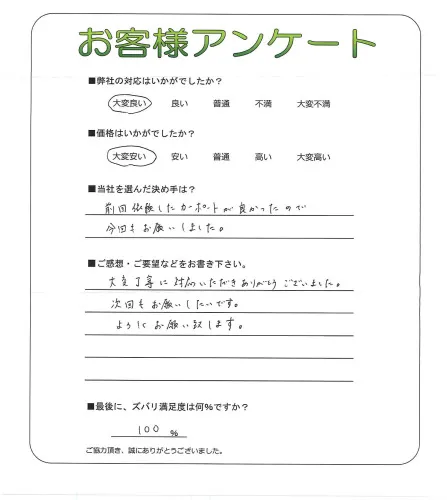 お客様アンケート
■弊社の対応はいかがでしたか?
大変良い 良い 普通 不満 大変不満
■価格はいかがでしたか?
大変安い 安い 普通 高い 大変高い
■当社を選んだ決め手は?
前回依頼したカーポートが良かったので
今回もお願いしました。
■ご感想・ご要望などをお書き下さい。
大変丁寧に対応いただきありがとうございました。
次回もお願いしたいです。
よろしくお願い致します。
■最後に、ズバリ満足度は何%ですか?
100 %
ご協力頂き、誠にありがとうございました。